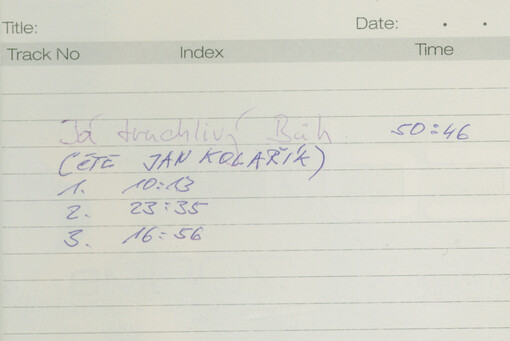 Title: Date: . .
Track No Index Time
Já truchlivý Bůh. 50:46
(ČTE JAN KOLAŘÍK)
1. 10:13
2. 23:35
3. 16:56